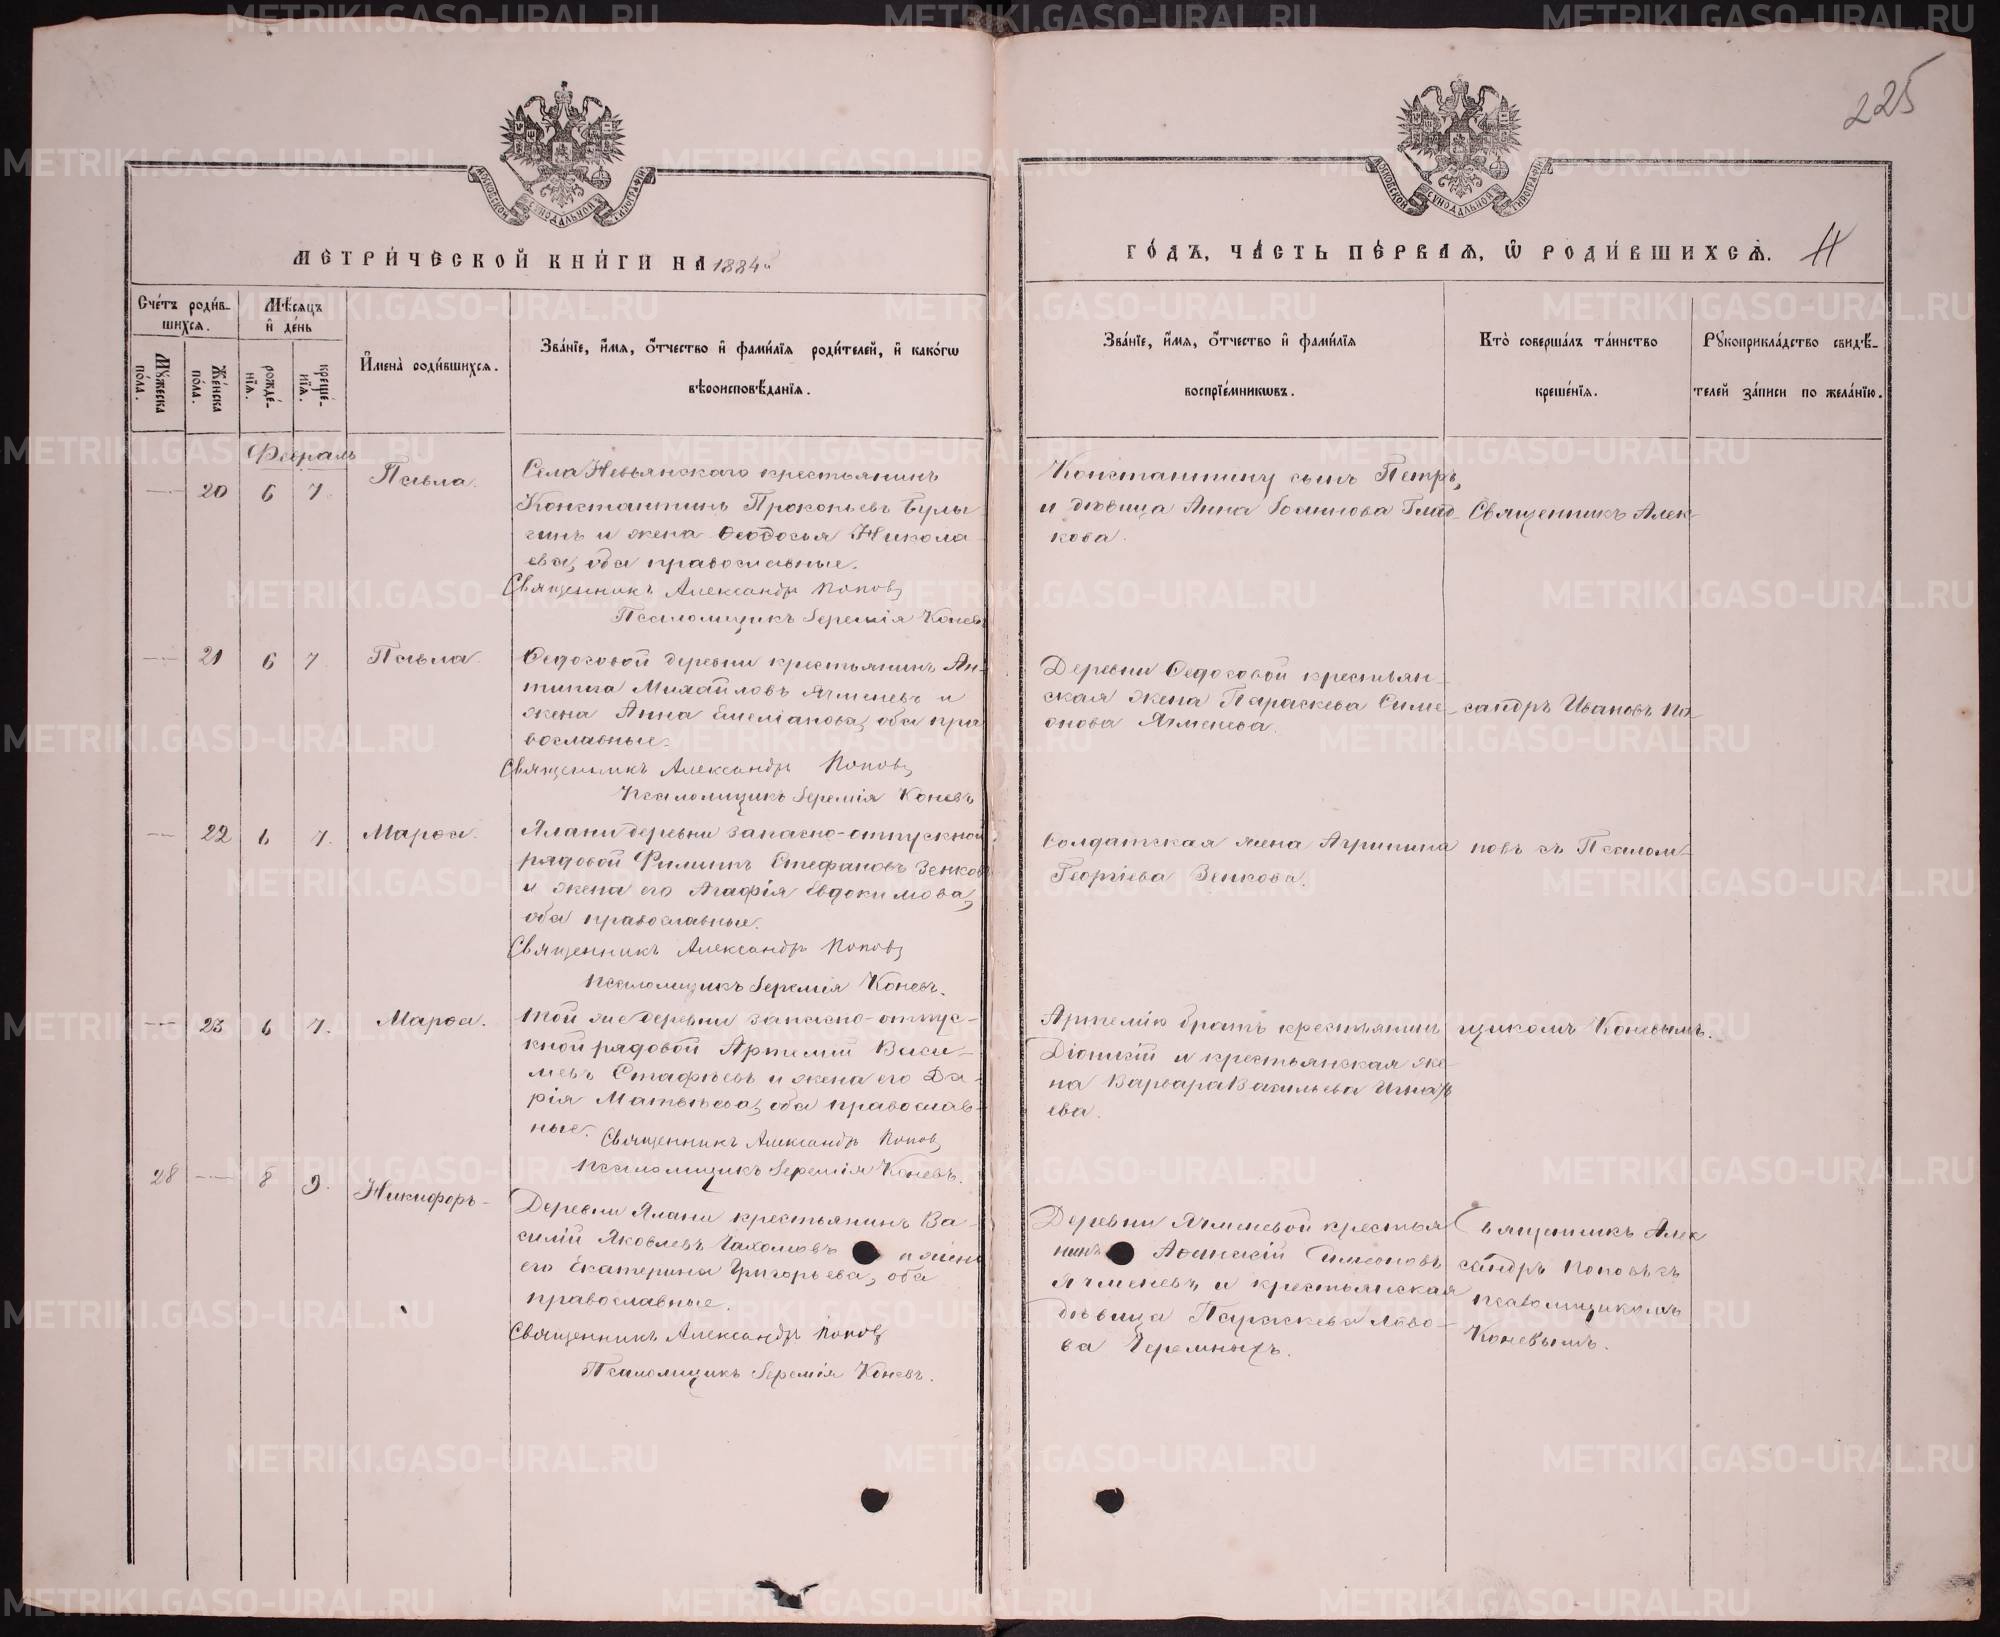 225
МОСКОВСКОЙ СѴНОДАЛЬНОЙ ТИПОГРАФІИ
МОСКОВСКОЙ СѴНОДАЛЬНОЙ ТИПОГРАФІИ
МЕТРИ́ЧЕСКОЙ КНИ́ГИ НА 1884й
ГО́ДЪ, ЧА́СТЬ ПЕ́РВАЯ, Ѡ РОДИ́ВШИХСЯ.
Сче́тъ роди́в-
шихся.
Мѣ́сяцъ
и҆ де́нь
Му́жеска
по́ла.
Же́нска
по́ла.
рожде́-
нїя.
креще́-
нїя.
И҆мена̀ роди́вшихся.
Зва́нїе, и҆́мя, ѻ҆́тчество и҆ фами́лїя роди́телей, и҆ како́гѡ
вѣроисповѣ́данїя.
Зва́нїе, и҆́мя, ѻ҆́тчество и҆ фами́лїя
воспрїе́мникѡвъ.
Кто̀ соверша́лъ та́инство
креще́нїя.
Рꙋкоприкла́дство свидѣ́-
телей за́писи по жела́нїю.
Февраль
20 6 7 Павла.
Села Невьянскаго крестьянинъ
Константинъ Прокопьевъ Булы-
гинъ и жена Ѳеодосья Никола-
ева, оба православные.
Священникъ Александръ Поповъ
Псаломщикъ Іеремія Коневъ
Константину сынъ Петръ,
и дѣвица Анна Глад-
кова.
Священникъ Алек-
21 6 7 Павла.
Ѳедосовой деревни крестьянинъ Ан-
типа Михайловъ Ячменевъ и
жена Анна Емеліанова, оба пра-
вославные.
Священникъ Александръ Поповъ
Псаломщикъ Іеремія Коневъ
Деревни Ѳедосовой крестьян-
ская жена Параскева Симе-
онова Ячменева.
сандръ Ивановъ По-
22 6 7. Марѳа.
Ялани деревни запасно-отпускной
рядовой Филиппъ Стефановъ Зенковъ
и жена его Агафія Евдокимова,
оба православные.
Священникъ Александръ Поповъ
Псаломщикъ Іеремія Коневъ.
Солдатская жена Агрипина
Георгіева Зенкова.
повъ съ Псалом-
23 6 7. Марѳа.
Той же деревни запасно-отпус-
кной рядовой Артемій Васи-
льевъ Стафѣевъ и жена его Да-
рія Матвѣева, оба православ-
ные.
Священникъ Александръ Поповъ
Псаломщикъ Іеремія Коневъ.
Артемію братъ крестьянинъ
Діонисій и крестьянская же-
на Варвара Васильева Игнать-
ева.
щикомъ Коневымъ.
28 8 9. Никифоръ
Деревни Ялани крестьянинъ Ва-
силій Яковлевъ Пахомовъ и жена
его Екатерина Григорьева, оба
православные.
Священникъ Александръ Поповъ
Псаломщикъ Іеремія Коневъ.
Деревни Ячменевой крестья-
нинъ Аѳанасій Симеоновъ
Ячменевъ и крестьянская
дѣвица Параскева
ва Черемныхъ.
Священникъ Алек-
сандръ Поповъ съ
псаломщикомъ
Коневымъ.
METRIKI.GASO-URAL.RU